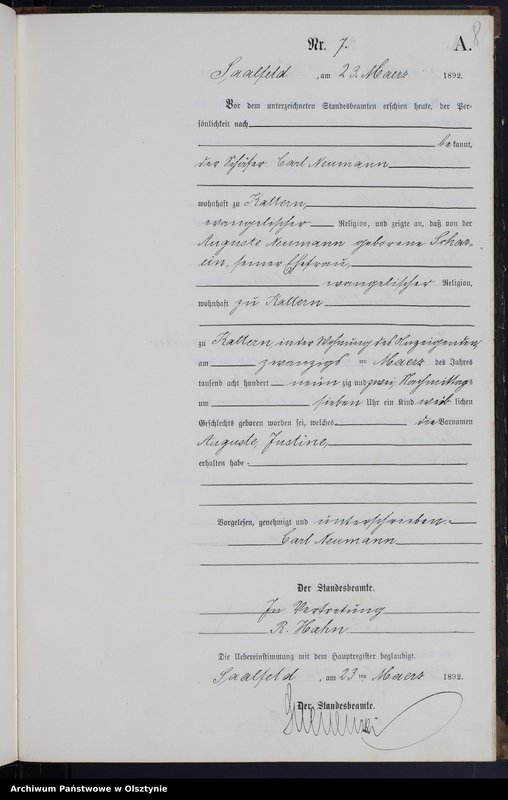 8
Nr. 7. A.
Saalfeld, am 23. Maerz 1892.
Vor dem unterzeichneten Standesbeamten erschien heute, der Per-
sönlichkeit nach
bekannt,
der Schäfer Carl Neumann
wohnhaft zu Kattern,
evangelischer Religion, und zeigte an, daß von der
Auguste Neumann geborene
seiner Ehefrau,
evangelischer Religion,
wohnhaft zu Kattern
zu Kattern in der Wohnung des Anzeigenden
am zwanzigs ten Maerz des Jahres
tausend acht hundert neun zig und zwei Nachmittags
um sieben Uhr ein Kind weib lichen
Geschlechts geboren worden sei, welches die Vornamen
Auguste, Justine,
erhalten habe.
Vorgelesen, genehmigt und unterschrieben.
Carl Neumann
Der Standesbeamte.
In Vertretung
R. Hahn.
Die Uebereinstimmung mit dem Hauptregister beglaubigt.
Saalfeld, am 23 ten Maerz 1892.
Der Standesbeamte.
Archiwum Państwowe w Olsztynie